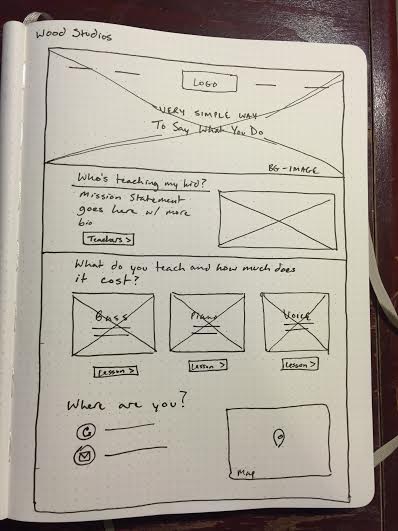 Wood Studios
LOGO
VERY SIMPLE WAY
To Say What You Do
BG-IMAGE
Who's teaching my kid?
Mission Statement
goes here w/ more
bio
Teachers >
What do you teach and how much does
it cost?
Bass
Piano
Voice
Lesson >
Lesson >
Lesson >
Where are you?
Map